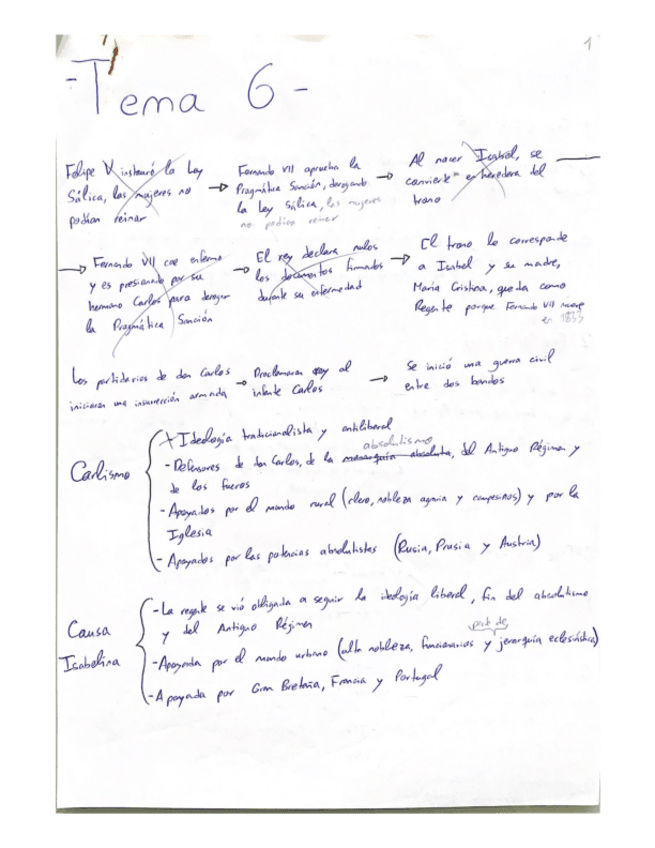 1
- Tema 6 -
Felipe V instauró la Ley
Sálica, las mujeres no
podían reinar
→ Fernando VII aprueba la
Pragmática Sanción, derogando
la Ley Sálica, las mujeres
no podían reinar
→ Al nacer Isabel, se
convierte en heredera del
trono
→ Fernando VII cae enfermo
y es presionado por su
hermano Carlos para derogar
la Pragmática Sanción
→ El rey declara nulos
los documentos firmados
durante su enfermedad
→ El trono le corresponde
a Isabel y su madre,
María Cristina, queda como
Regente porque Fernando VII muere
en 1833
Los partidarios de don Carlos
iniciaron una insurrección armada
→ Proclamaron rey al
infante Carlos
→ Se inició una guerra civil
entre dos bandos
Carlismo
+ Ideología tradicionalista y antiliberal
absolutismo
- Defensores de don Carlos, de la monarquía absoluta, del Antiguo Régimen y
de los fueros
- Apoyados por el mundo rural (clero, nobleza agraria y campesinos) y por la
Iglesia
- Apoyados por las potencias absolutistas (Rusia, Prusia y Austria)
Causa
Isabelina
- La regente se vió obligada a seguir la ideología liberal, fin del absolutismo
y del Antiguo Régimen
parte de
- Apoyada por el mundo urbano (alta nobleza, funcionarios y jerarquía eclesiástica)
- Apoyada por Gran Bretaña, Francia y Portugal